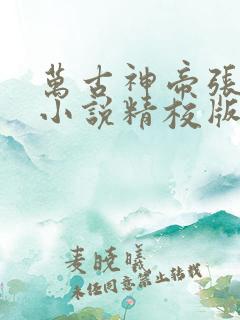 萬古神帝張
小說精校版
麦晓曦
未经同意禁止转载